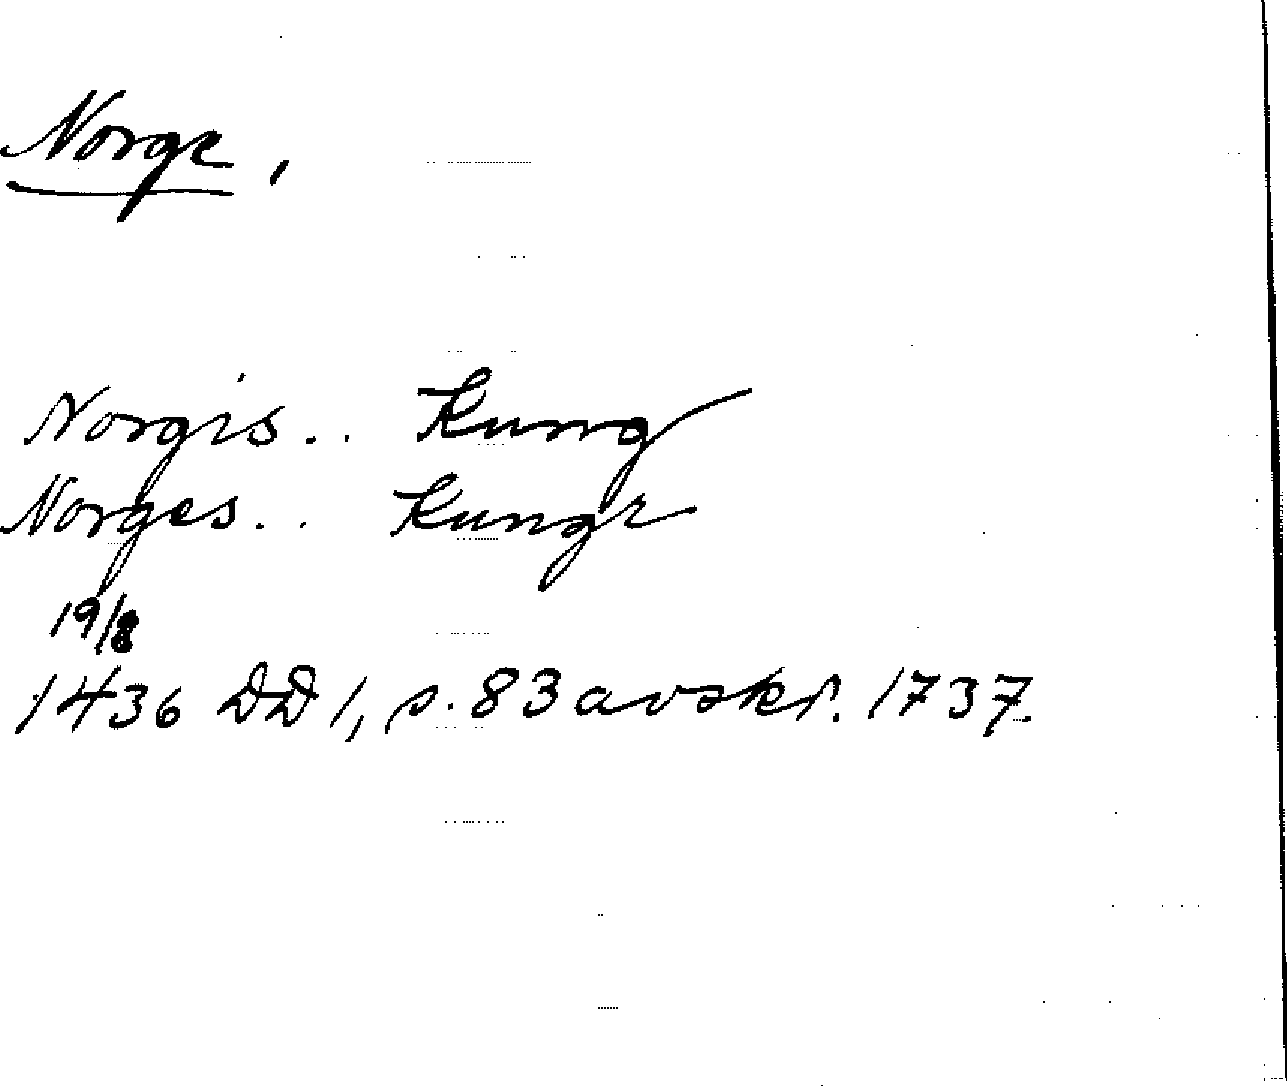 Norge,
Norgis.. Kung
Norges.. Kungr
19/8
1436 DD 1, s. 83 avskr. 1737.